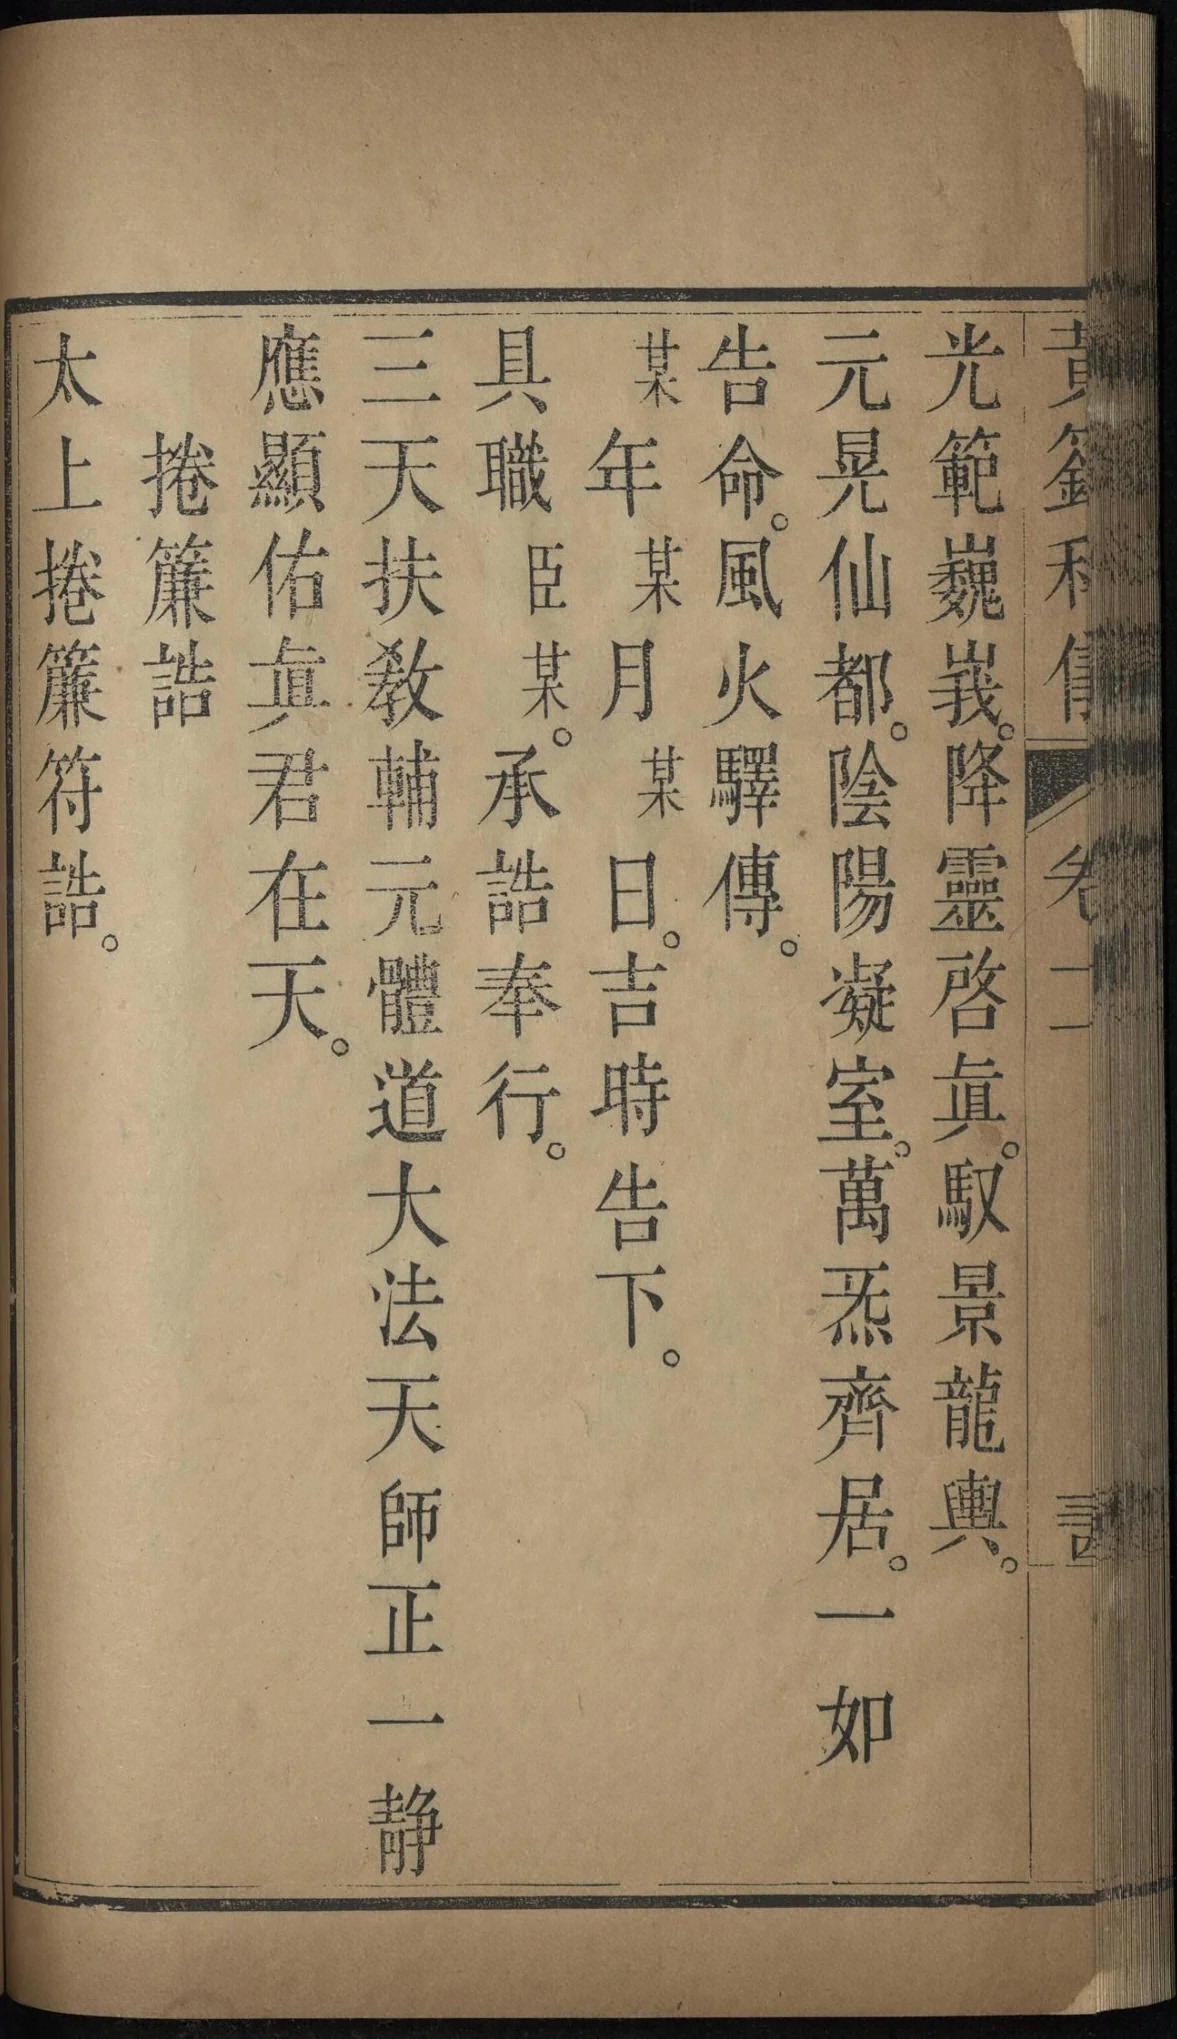 黃籙科儀 卷十一
光範巍峩。降靈啓眞。馭景龍輿。
元晃仙都。陰陽凝室。萬炁齊居。一如
告命。風火驛傳。
某年某月某日。吉時告下。
具職臣某。承誥奉行。
三天扶敎輔元體道大法天師正一静
應顯佑眞君在天。
捲簾誥
太上捲簾符誥。